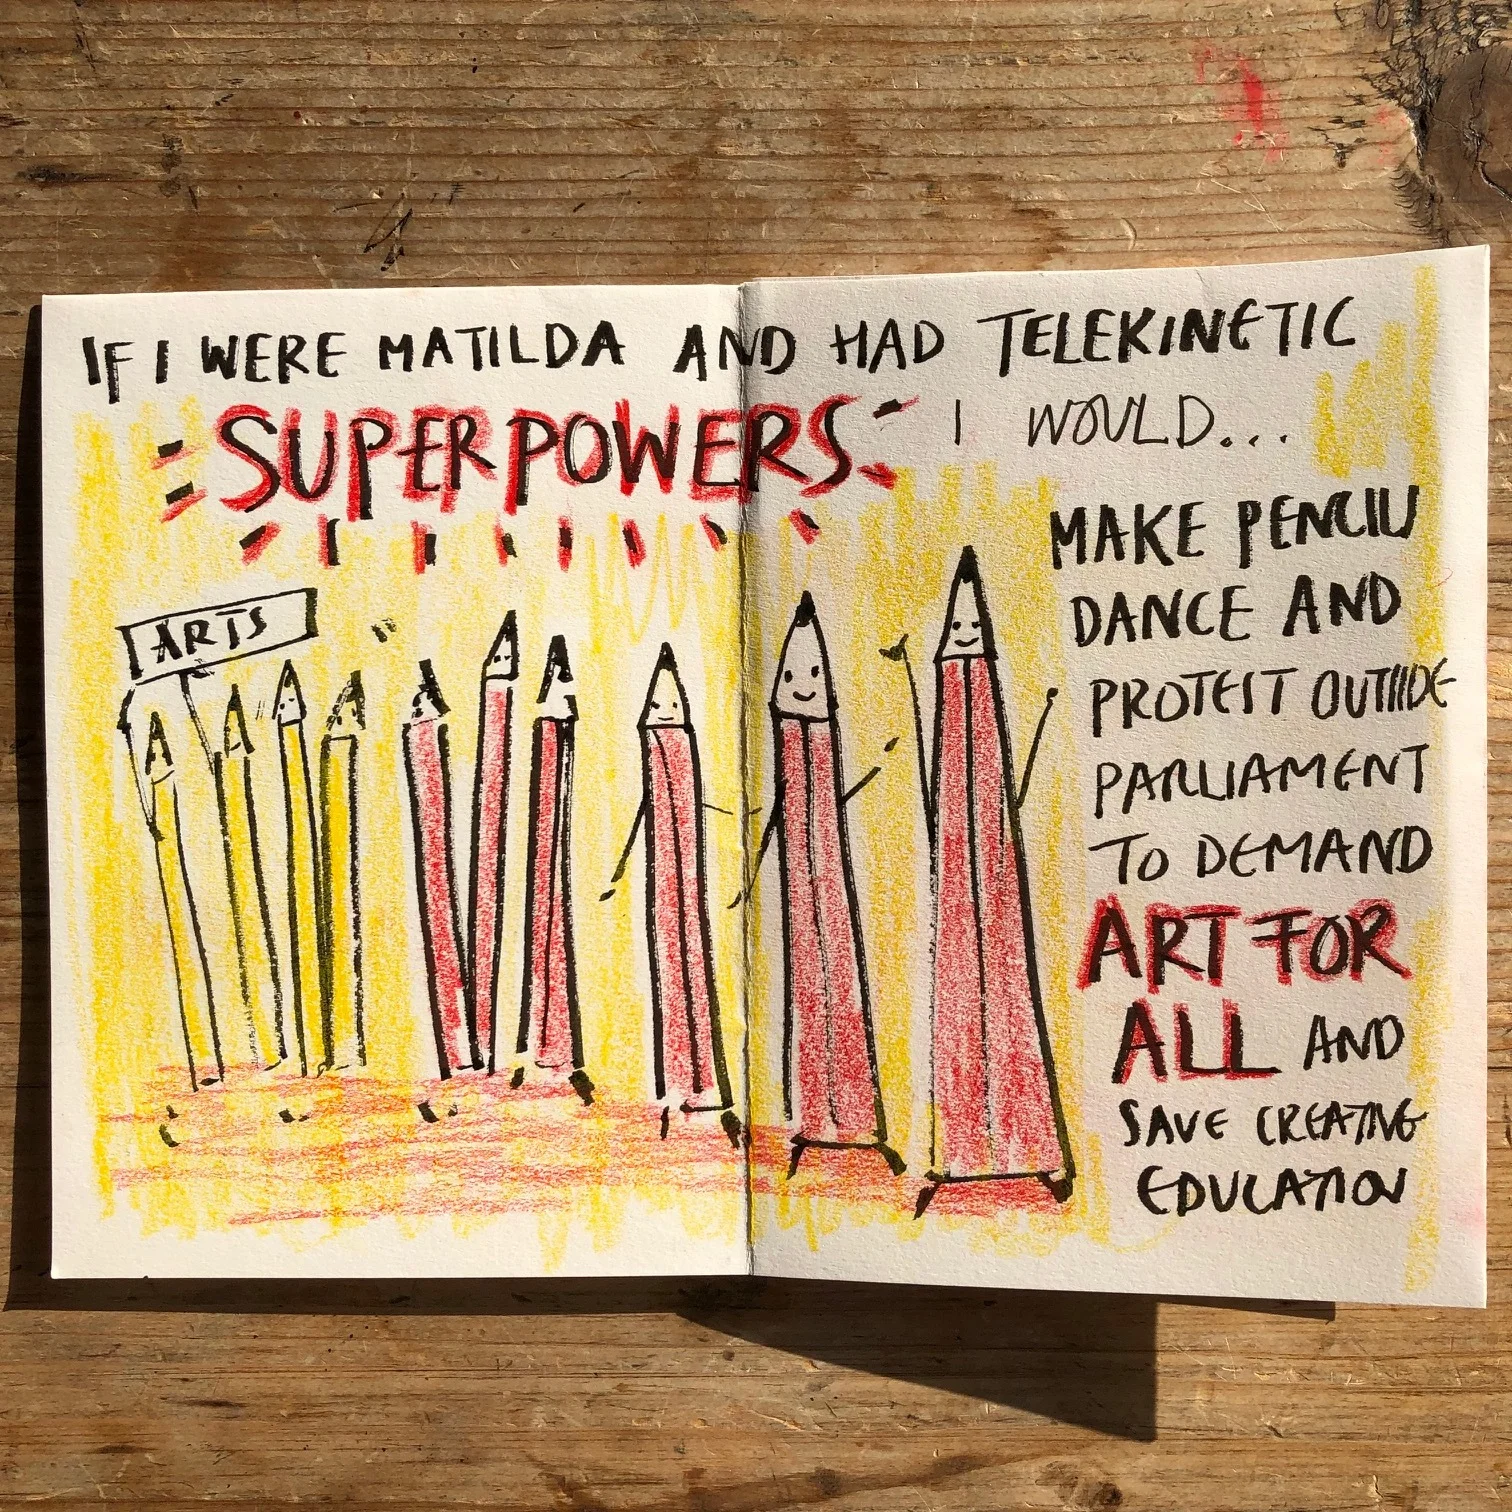 IF I WERE MATILDA AND HAD TELEKINETIC
SUPERPOWERS I WOULD...
ARTS
MAKE PENCILS
DANCE AND
PROTEST OUTSIDE
PARLIAMENT
TO DEMAND
ART FOR
ALL AND
SAVE CREATIVE
EDUCATION